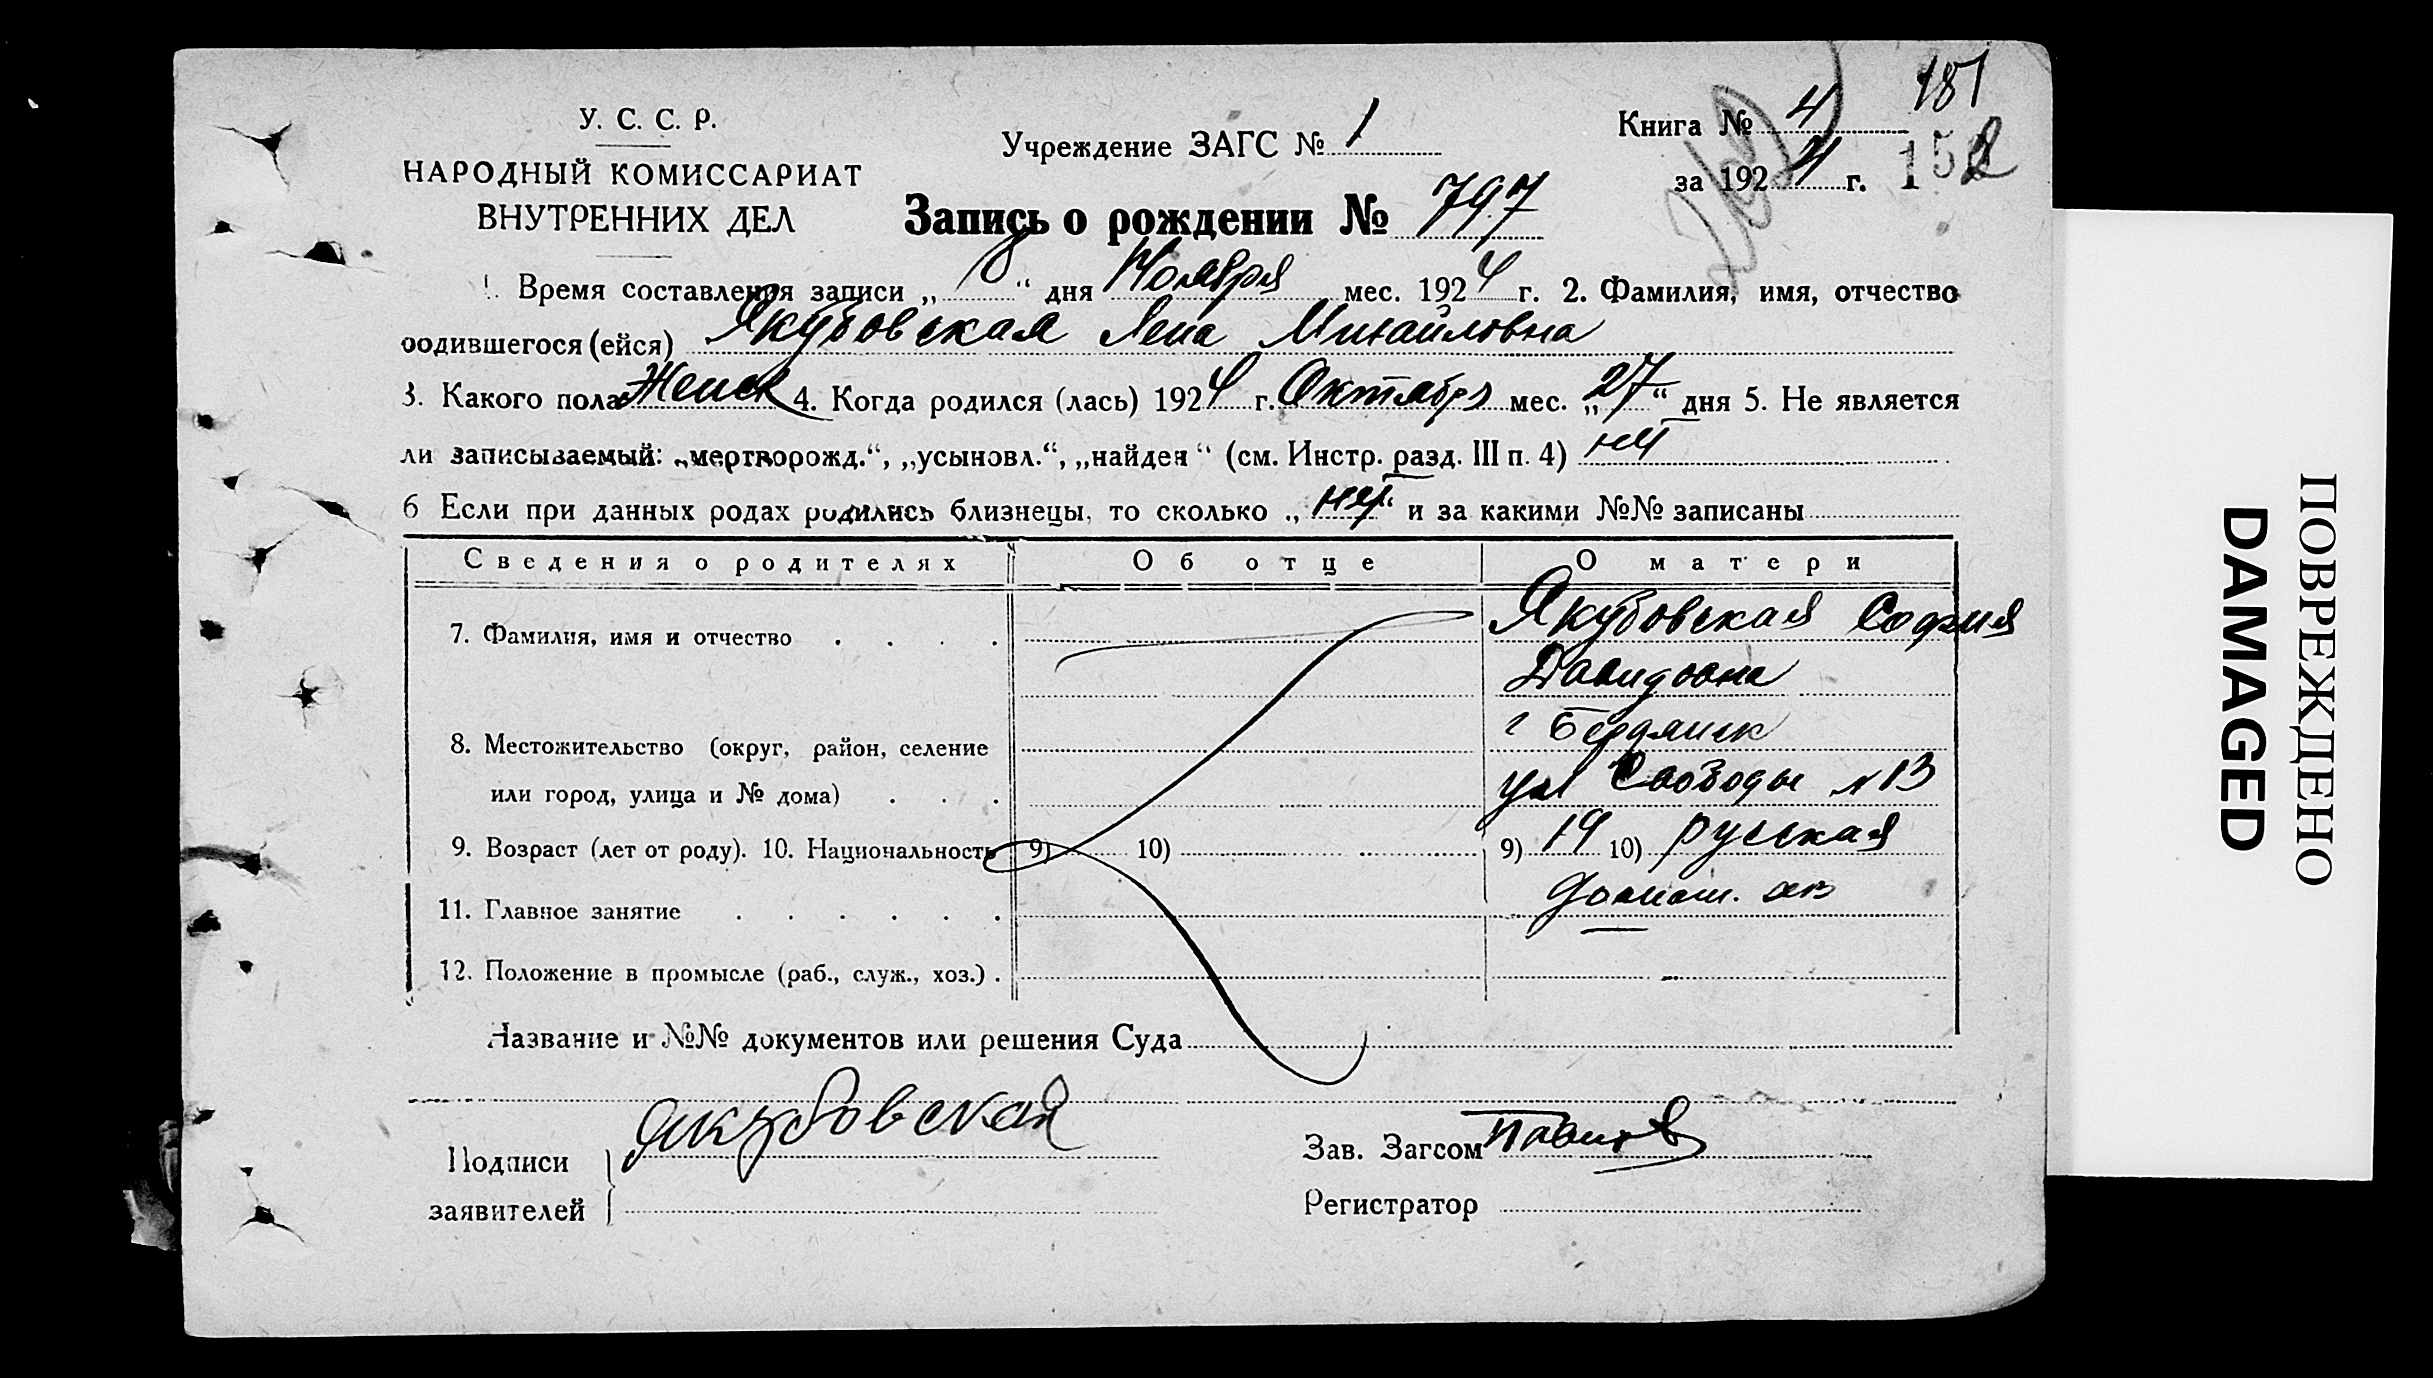 181
У. С. С. Р.
Учреждение ЗАГС № 1
Книга № 4
НАРОДНЫЙ КОМИССАРИАТ
за 1924 г. 152
ВНУТРЕННИХ ДЕЛ
Запись о рождении № 797
1. Время составления записи „8“ дня Ноября мес. 1924 г. 2. Фамилия, имя, отчество
родившегося (ейся) Якубовская Лена Михайловна
3. Какого пола Женск 4. Когда родился (лась) 1924 г. Октябрь мес. „27“ дня 5. Не является
ли записываемый: „мертворожд.“, „усыновл.“, „найден“ (см. Инстр. разд. III п. 4) нет
6 Если при данных родах родились близнецы, то сколько „нет“ и за какими №№ записаны
Сведения о родителях Об отце О матери
7. Фамилия, имя и отчество Якубовская София
Давидовна
8. Местожительство (округ, район, селение г Бердянск
или город, улица и № дома) ул Свободы № 13
9. Возраст (лет от роду). 10. Национальность 9) 10) 9) 19 10) русская
11. Главное занятие домаш. хоз
12. Положение в промысле (раб., служ., хоз.)
Название и №№ документов или решения Суда
Подписи Якубовская
заявителей
Зав. Загсом
Регистратор
ПОВРЕЖДЕНО
DAMAGED